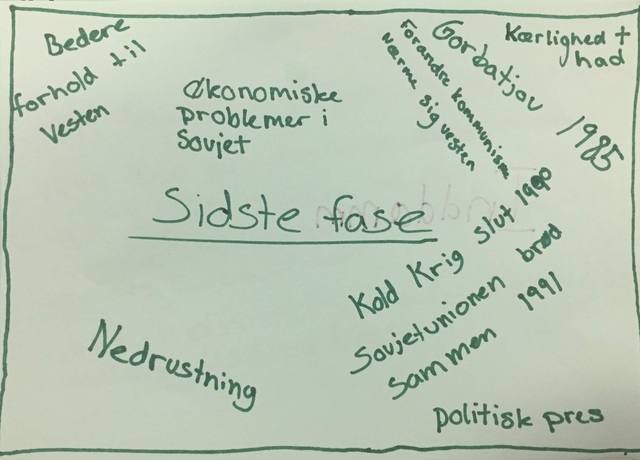 Bedere
forhold til
Vesten
Økonomiske
problemer i
Sovjet
Gorbatjov 1985
Forandre kommunisme
nærme sig vesten
Kærlighed +
had
Sidste fase
Kold Krig slut 1990
Sovjetunionen brød
sammen 1991
Nedrustning
politisk pres